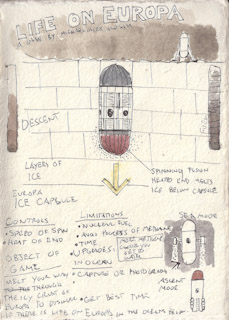 LIFE ON EUROPA
A GAME BY
DESCENT
LAYERS OF
ICE
SPINNING
HEATED END MELTS
ICE BELOW CAPSULE
EUROPA
ICE CAPSULE
CONTROLS
• SPEED OF SPIN
• HEAT OF END
OBJECT OF
GAME
MELT YOUR WAY
THROUGH
THE ICY CRUST OF
EUROPA TO
IF THERE IS LIFE ON EUROPA IN THE OCEANS BELOW
LIMITATIONS
• NUCLEAR FUEL
• AVOID POCKETS OF METHANE
• TIME
• UPGRADES!
IN OCEAN
• CAPTURE OR PHOTOGRAPH
• GET BEST TIME
SEA MODE
ASCENT
MODE